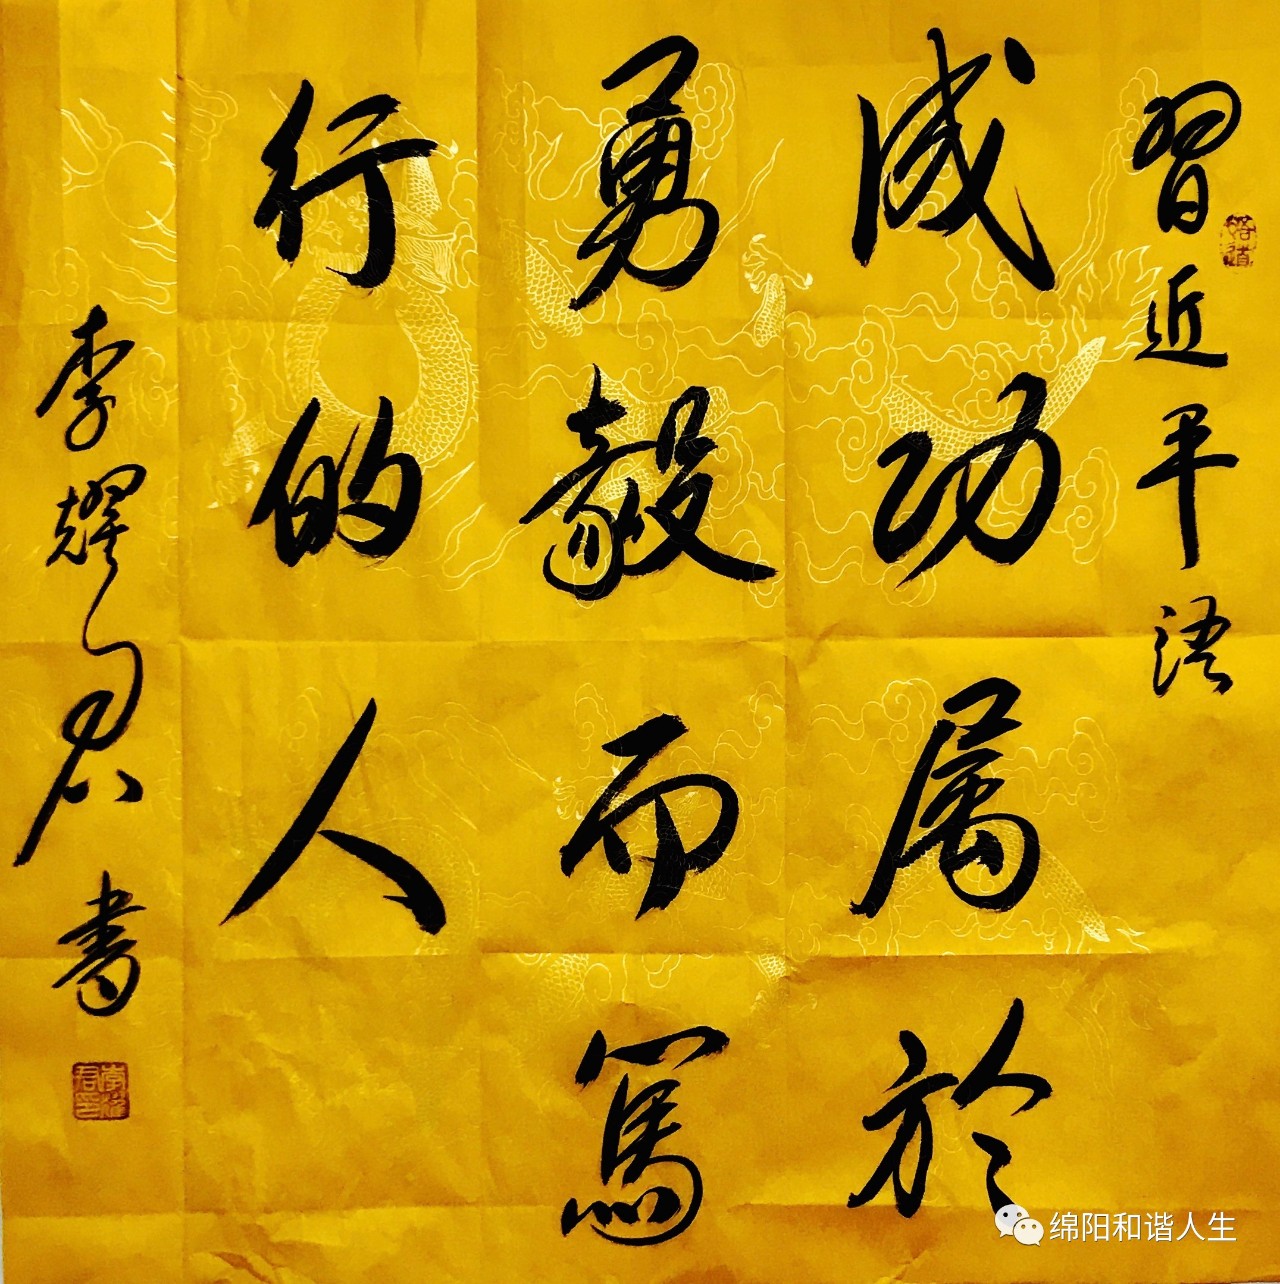 習近平语
成功属於
勇毅而篤
行的人
李耀君書
绵阳和谐人生